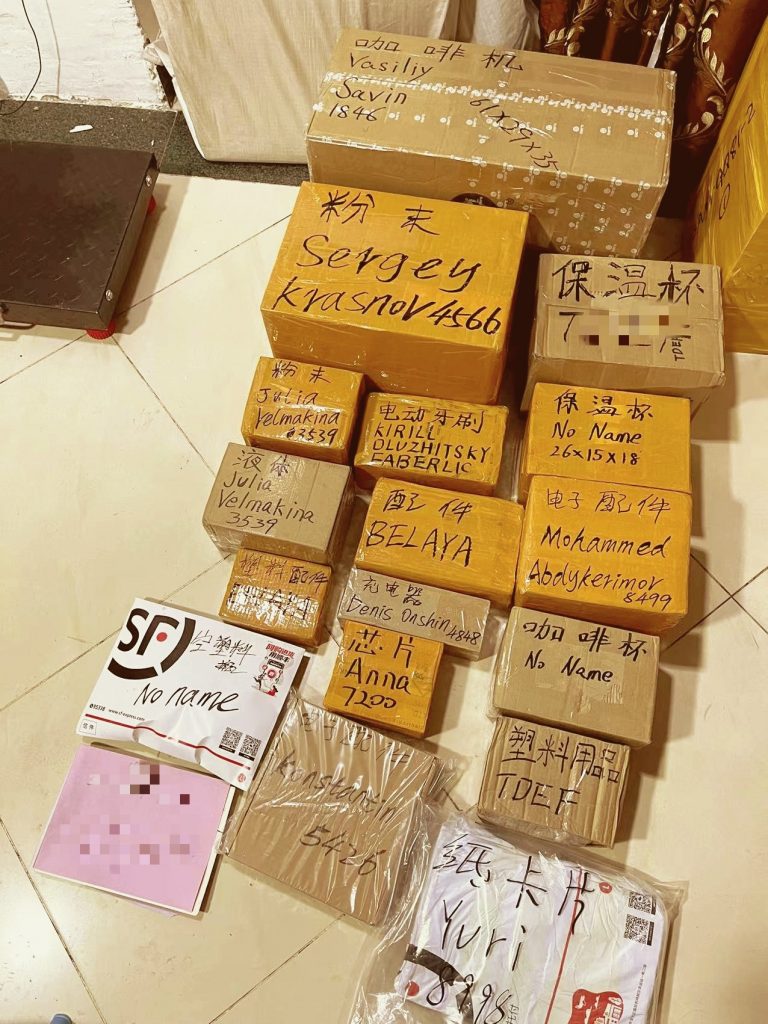 咖啡机
Vasiliy
Savin
1846
61x29x35
粉末
Sergey
krasnov 4566
保温杯
TDEF
粉末
Julia
Velmakina
3539
电动牙刷
KIRILL
DLUZHITSKY
FABERLIC
保温杯
No Name
26x15x18
液体
Julia
Velmakina
3539
配件
BELAYA
电子配件
Mohammed
Abdykerimov
8499
塑料配件
充电器
Denis Onshin 4848
芯片
Anna
7200
咖啡杯
No Name
SF
塑料
No name
www.sf-express.com
电子配件
konstantin
5426
塑料用品
TDEF
纸卡片
Yuri
8998